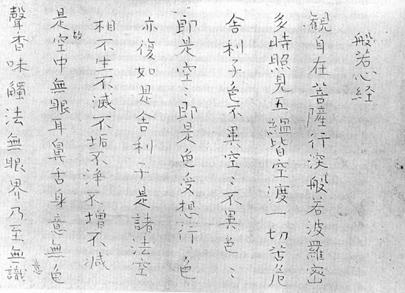 般若心経
觀自在菩薩行深般若波羅密
多時照見五緼皆空渡一切苦危
舎利子色不異空〻不異色〻
即是空〻即是色受想行色
亦復如是舎利子是諸法空
相不生不滅不垢不浄不増不減
是故空中無眼耳鼻舌身意無色
聲香味觸法無眼界乃至無意識